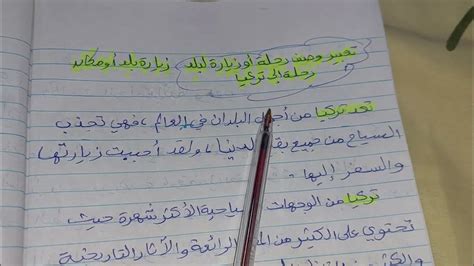 تعبير وصف رحلة أو زيارة لبلد زيارة بلد أو مكان
رحلة إلى تركيا
تعد تركيا من أجمل البلدان في العالم، فهي تجذب
السياح من جميع بقاع الدنيا، ولقد أحببت زيارتها
والسفر إليها.
تركيا من الوجهات السياحية الأكثر شهرة حيث
تحتوي على الكثير من الرائعة والآثار التاريخية